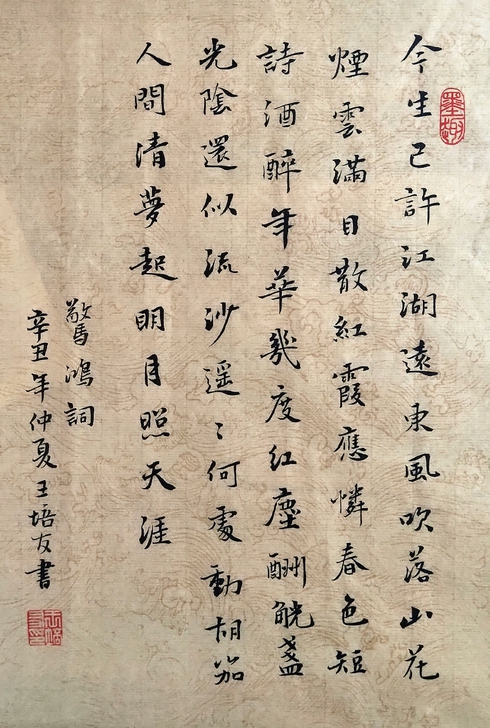 今生已許江湖遠東風吹落山花
煙雲滿目散紅霞應憐春色短
詩酒醉年華幾度紅塵酬觥盞
光陰還似流沙遥〻何處動胡笳
人間清夢起明月照天涯
驚鴻詞
辛丑年仲夏王培友書
墨趣